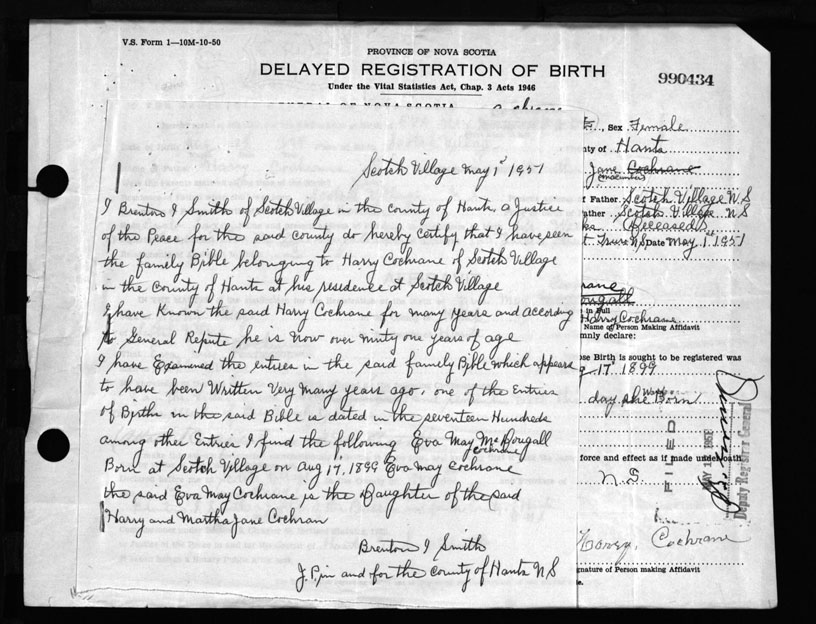 V.S. Form 1—10M-10-50
PROVINCE OF NOVA SCOTIA
DELAYED REGISTRATION OF BIRTH
990434
Under the Vital Statistics Act, Chap. 3 Acts 1946
OF NOVA SCOTIA
Sex Female
nty of Hants
Jane Cochrane
Father Scotch Village N.S
ather Scotch Village NS
Deceased
Date May 1st 1951
Scotch Village May 1st 1951
I Brenton I Smith of Scotch Village in the county of Hants, a Justice
of the Peace for the said county do hereby certify that I have seen
the family Bible belonging to Harry Cochrane of Scotch Village
in the County of Hants at his residence at Scotch Village
I have Known the said Harry Cochrane for many years and according
to General Repute he is now over ninty one years of age
I have Examined the entries in the said family Bible which appears
to have been Written Very many years ago, one of the Entries
of Birth in the said Bible is dated in the seventeen Hundreds
among other Entries I find the following Eva May McDougall
Cochrane
Born at Scotch Village on Aug 17, 1899 Eva May Cochrane
the said Eva May Cochrane is the Daughter of the said
Harry and Martha Jane Cochran
Brenton I Smith
J.P. in and for the County of Hants NS
rane
ougall
in Full
Harry Cochrane
Name of Person Making Affidavit
mnly declare:
ose Birth is sought to be registered was
17" 1899
day she Was Born
force and effect as if made under oath
N S
FILED
MAY 1951
Deputy Registrar General
Harry Cochrane
gnature of Person making Affidavit